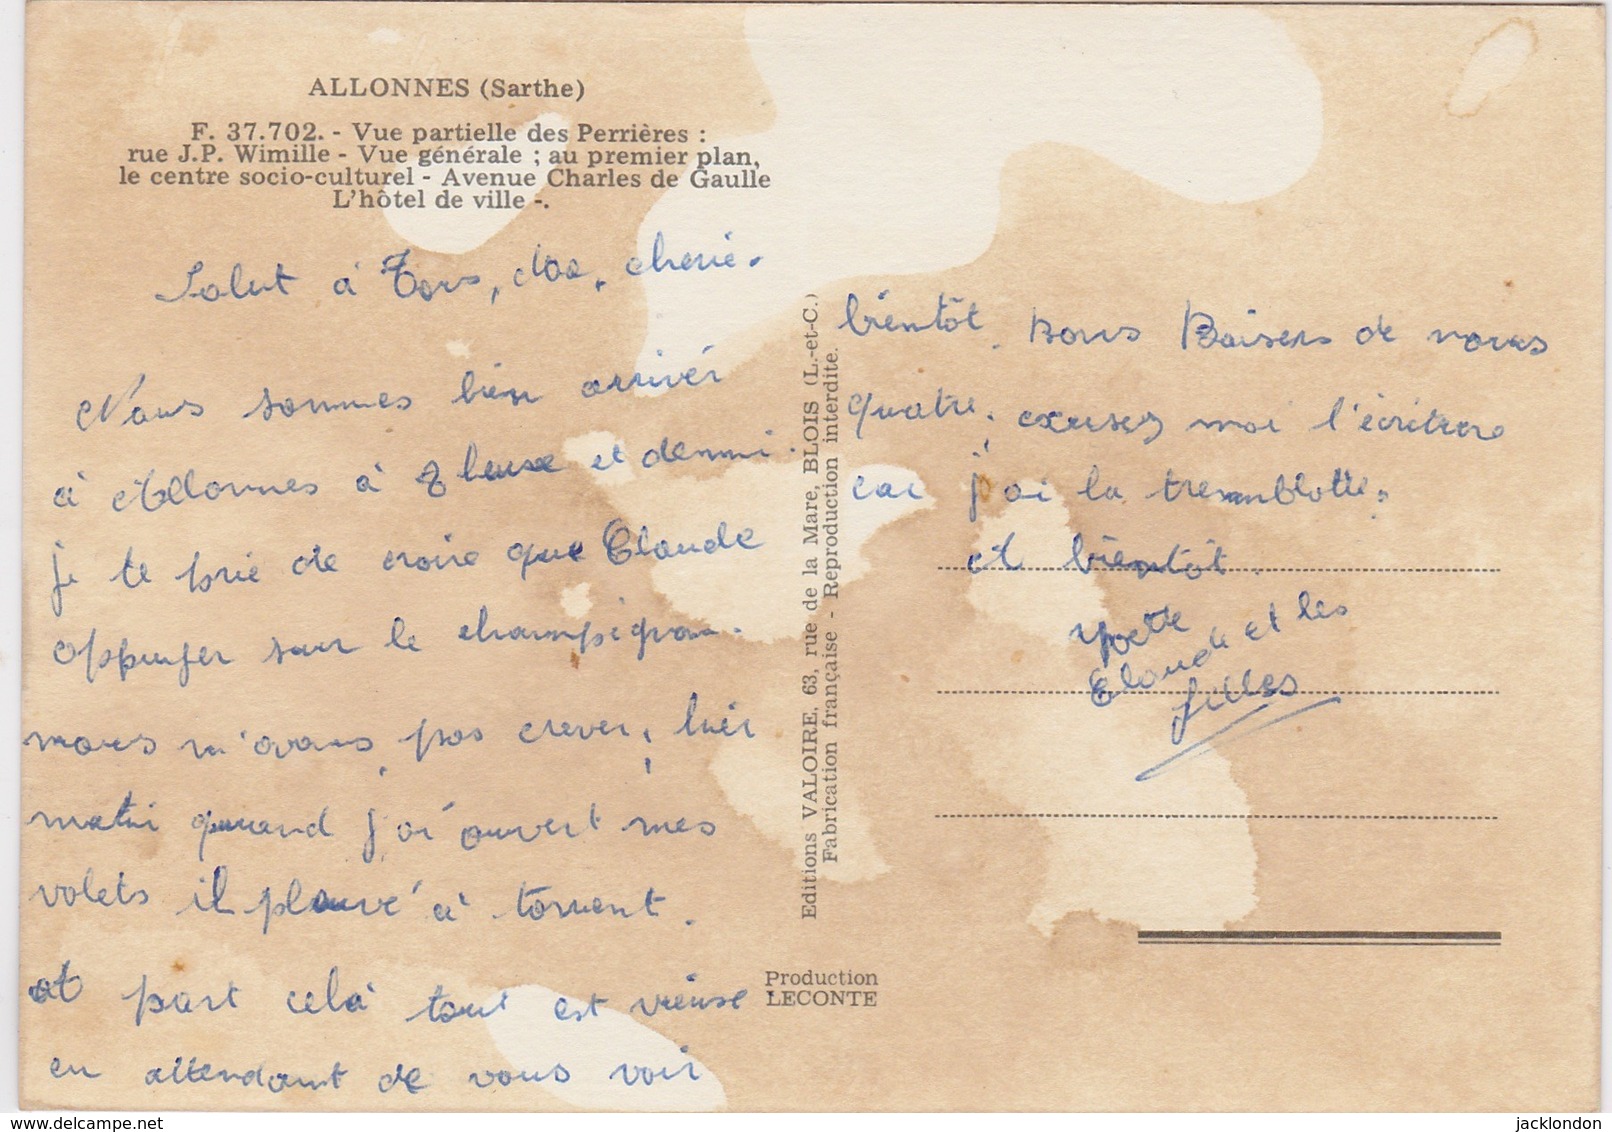 ALLONNES (Sarthe)
F. 37.702. - Vue partielle des Perrières :
rue J.P. Wimille - Vue générale ; au premier plan,
le centre socio-culturel - Avenue Charles de Gaulle
L'hôtel de ville -.
Salut à Tous, cherie.
Nous sommes bien arrivér
à Allonnes à 8 heuse et demmi.
je te prie de croire que Claude
oppuyer sur le champignon.
mais n'avons pas crever, hier
matin quand j'ai ouvert mes
volets il pleuvé à torrent.
at part celà tout est
en attendant de vous voir
bientôt. Bons Baisers de nous
quatre. excusez moi l'écriture
car j'ai la tremblotte.
et bientôt.
Yvette
Claude et les
filles
Editions VALOIRE, 63, rue de la Mare, BLOIS (L.-et-C.)
Fabrication française - Reproduction interdite.
Production
LECONTE
www.delcampe.net
jacklondon